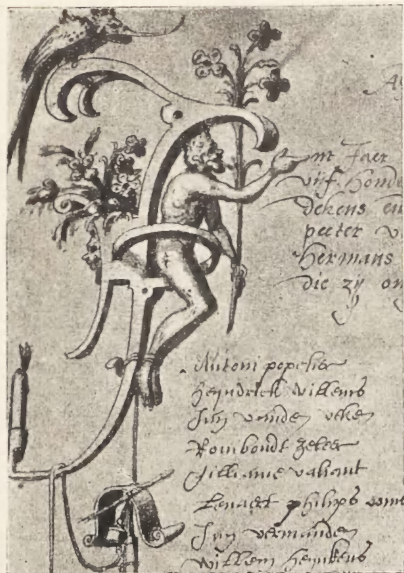 A
int Jaer
vijf honde
dekens en
peeter v
hermans
die zy on
Antoni popelier
heyndrick willems
Jan vanden veken
Rombondt
valiant
Lenaert philips
Jan vermanden
willem heyndens